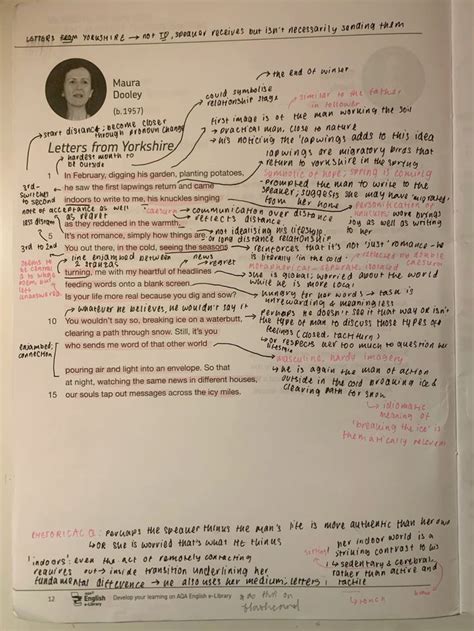 LETTERS FROM YORKSHIRE → not TO, speaker receives but isn't necessarily sending them
Maura
Dooley
(b.1957)
the end of winter
could symbolise
relationship stage
similar to the father
in follower
first image is of the man working the soil
→ practical man, close to nature
→ his noticing the 'lapwings adds to this idea
lapwings are migratory birds that
return to yorkshire in the spring
symbolic of hope; spring is coming
start distance; become closer
through pronoun change
Letters from Yorkshire
hardest month to
be outside
1 In February, digging his garden, planting potatoes,
he saw the first lapwings return and came
indoors to write to me, his knuckles singing
as they reddened in the warmth.
5 It's not romance, simply how things are.
You out there, in the cold, seeing the seasons
turning, me with my heartful of headlines
feeding words onto a blank screen.
Is your life more real because you dig and sow?
10 You wouldn't say so, breaking ice on a waterbutt,
clearing a path through snow. Still, it's you
who sends me word of that other world
pouring air and light into an envelope. So that
at night, watching the same news in different houses,
15 our souls tap out messages across the icy miles.
3rd-
switches
to second
less distant
note of acceptance as well
as regret
caesura
3rd to 2nd
line enjambed between
news
regret
prompted the man to write to the
speaker, suggests she may have 'migrated'
from her home
personification of
knuckles
work brings
joy as well as
writing to
her
communication over distance
reflects distance
not idealising his lifestyle
or long distance relationship
reinforces that it's not 'just' romance – he
is literally 'in the cold'
reflected by double
caesura
metaphorical – separate, isolated
she is global, worried about the world
while he is more local
hungry for her words → task is
unrewarding & meaningless
whatever he believes, he wouldn't say it
perhaps he doesn't see it that way or isn't
the type of man to discuss those types of
feelings (closed, taciturn)
or respects her too much to question her
lifestyle
enjambed;
connection
masculine, hardy imagery
he is again the man of action
outside in the cold breaking ice &
clearing path for snow
idiomatic
meaning of
'breaking the ice' is
thematically relevant
RHETORICAL Q: perhaps the speaker thinks the man's life is more authentic than her own
↳ OR she is worried that's what he thinks
'indoors' even the act of remotely contacting
requires out → inside transition underlining her
fundamental difference → he also uses her medium, letters
her indoor world is a
striking contrast to his
→ sedentary & cerebral
rather than active and
tactile
12
English
e-Library
Develop your learning on AQA English e-Library